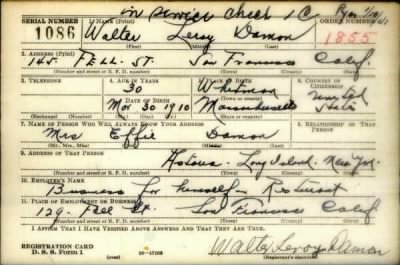 in service Check 1C
SERIAL NUMBER 1. NAME (Print) ORDER NUMBER
1086 Walter Leroy Damon 1855
(First) (Middle) (Last)
2. ADDRESS (Print)
145 FELL ST. San Francisco Calif.
(Number and street or R. F. D. number) (Town) (County) (State)
3. TELEPHONE 4. AGE IN YEARS 5. PLACE OF BIRTH 6. COUNTRY OF CITIZENSHIP
30 Whitman
DATE OF BIRTH
Mar 30 1910 Massachusetts
(Exchange) (Number) (Mo.) (Day) (Yr.) (State or country)
7. NAME OF PERSON WHO WILL ALWAYS KNOW YOUR ADDRESS 8. RELATIONSHIP OF THAT PERSON
Mrs Effie Damon
(Mr., Mrs., Miss) (First) (Middle) (Last)
9. ADDRESS OF THAT PERSON
Long Island New York
(Number and street or R. F. D. number) (Town) (County) (State)
10. EMPLOYER'S NAME
Business for himself - Resturant
11. PLACE OF EMPLOYMENT OR BUSINESS
129 Fell St. San Francisco Calif
(Number and street or R. F. D. number) (Town) (County) (State)
I AFFIRM THAT I HAVE VERIFIED ABOVE ANSWERS AND THAT THEY ARE TRUE.
REGISTRATION CARD
D. S. S. Form 1 16—17105 Walter Leroy Damon
(Registrant's signature)